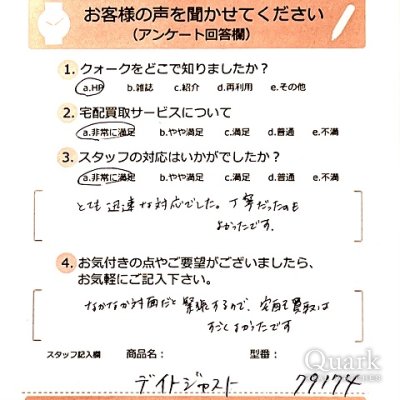 お客様の声を聞かせてください
(アンケート回答欄)
1. クォークをどこで知りましたか?
a.HP b.雑誌 c.紹介 d.再利用 e.その他
2. 宅配買取サービスについて
a.非常に満足 b.やや満足 c.満足 d.普通 e.不満
3. スタッフの対応はいかがでしたか?
a.非常に満足 b.やや満足 c.満足 d.普通 e.不満
とても迅速な対応でした。丁寧だったのも
よかったです。
4. お気付きの点やご要望がございましたら、
お気軽にご記入下さい。
なかなか対面だと緊張するので、宅配買取は
すごくよかったです
スタッフ記入欄 商品名: 型番:
デイトジャスト 79174
Quark